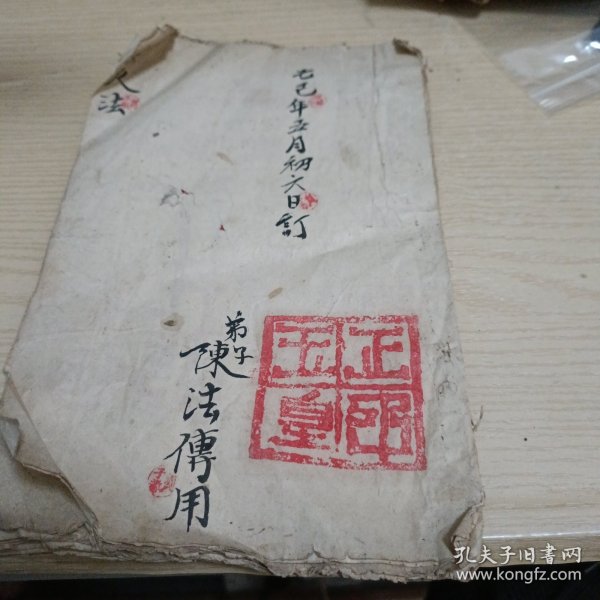 乙巳年五月初六日訂
弟子
陳法傳用
法
玉皇
正印
孔夫子旧书网
www.kongfz.com